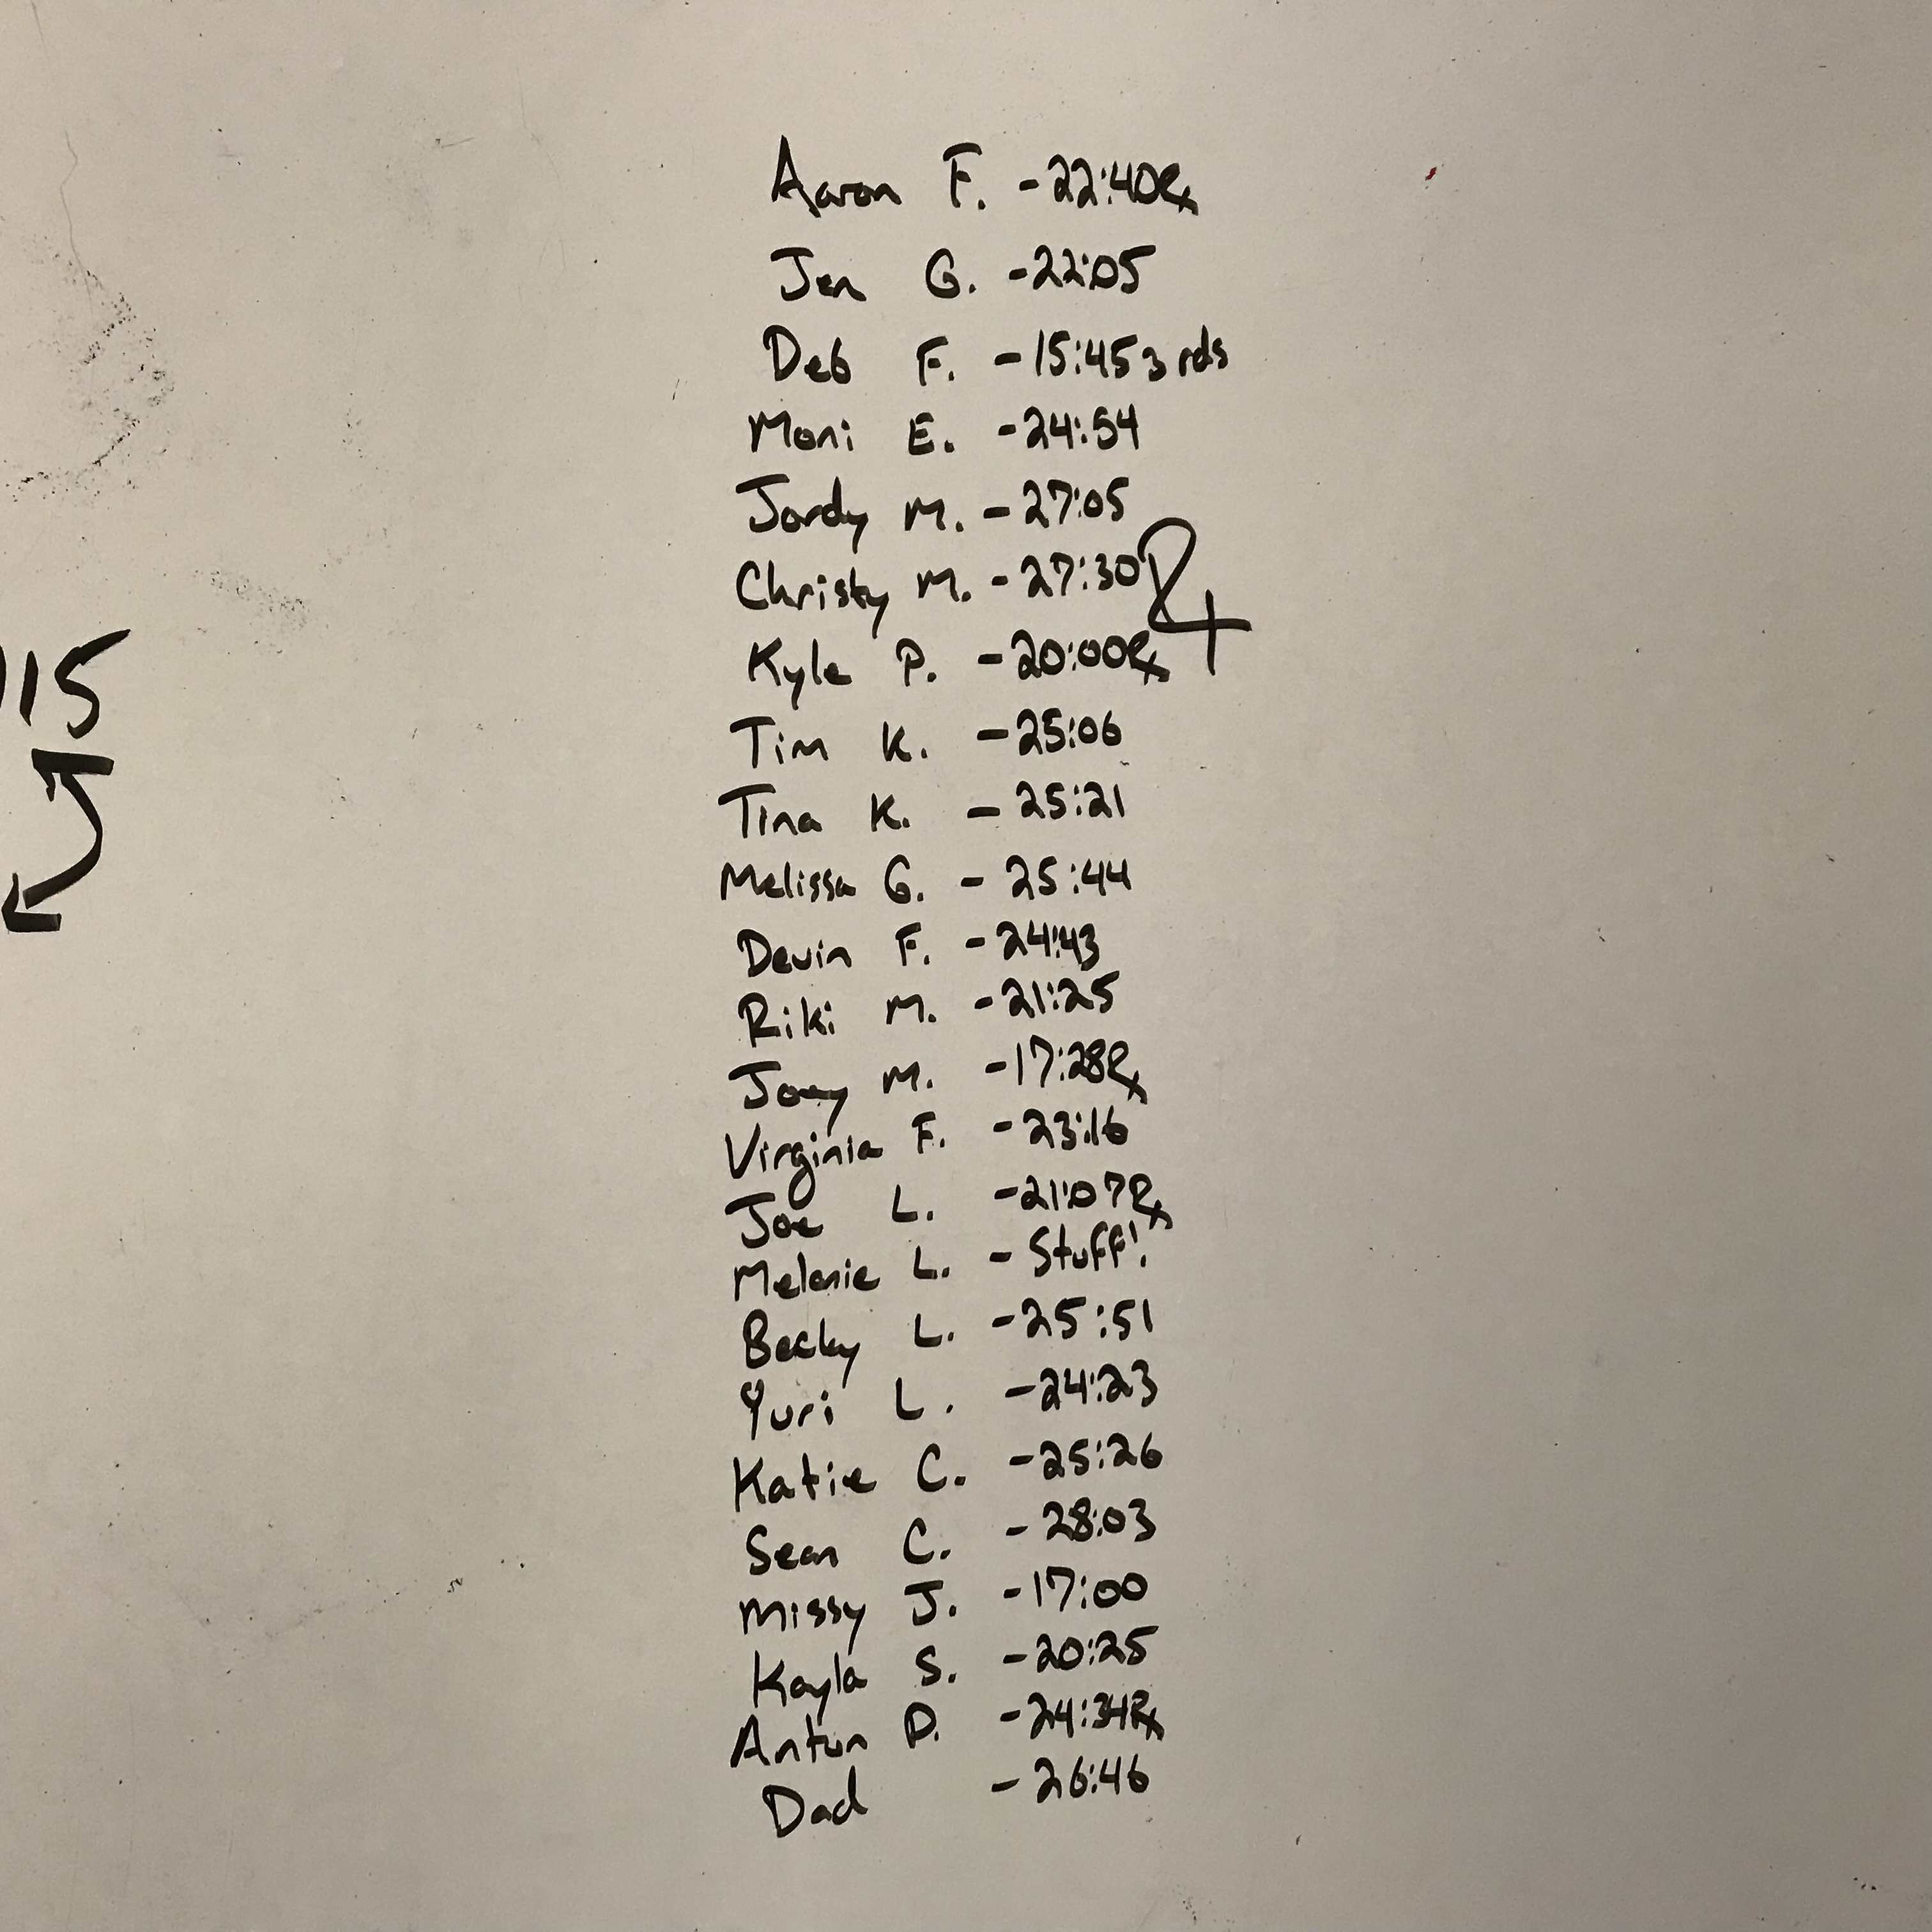 Aaron F. - 22:40 Rx
Jen G. - 22:05
Deb F. - 15:45 3 rds
Moni E. - 24:54
Jordy M. - 27:05
Christy M. - 27:30 Rx
Kyle P. - 20:00 Rx
115
Tim K. - 25:06
Tina K. - 25:21
Melissa G. - 25:44
Devin F. - 24:43
Riki M. - 21:25
Joey M. - 17:28 Rx
Virginia F. - 23:16
Joe L. - 21:07 Rx
Melanie L. - Stuff!
Becky L. - 25:51
Yuri L. - 24:23
Katie C. - 25:26
Sean C. - 28:03
Missy J. - 17:00
Kayla S. - 20:25
Anton P. - 24:34 Rx
Dad - 26:46